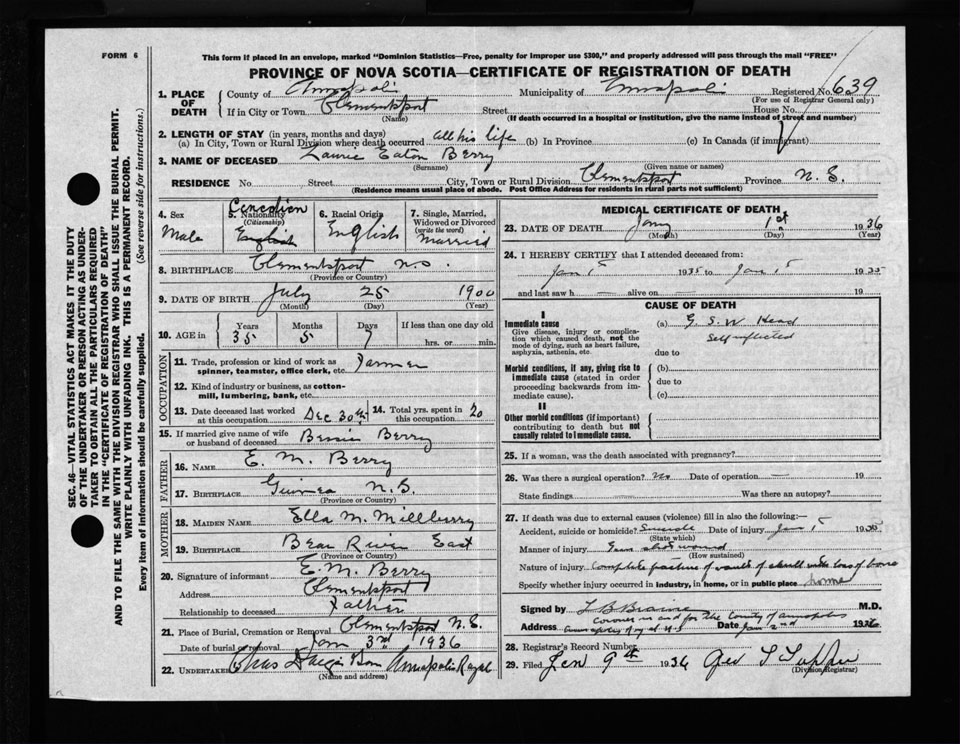 FORM 6
This form if placed in an envelope, marked "Dominion Statistics—Free, penalty for improper use $300," and properly addressed will pass through the mail "FREE"
PROVINCE OF NOVA SCOTIA—CERTIFICATE OF REGISTRATION OF DEATH
1. PLACE OF DEATH County of Annapolis Municipality of Annapolis Registered No. 639
(For use of Registrar General only)
If in City or Town Clementsport Street House No.
(Name) (If death occurred in a hospital or institution, give the name instead of street and number)
2. LENGTH OF STAY (in years, months and days)
(a) In City, Town or Rural Division where death occurred all his life (b) In Province (c) In Canada (if immigrant)
3. NAME OF DECEASED Laurie Eaton Berry
(Surname) (Given name or names)
RESIDENCE No. Street City, Town or Rural Division Clementsport Province N. S.
(Residence means usual place of abode. Post Office Address for residents in rural parts not sufficient)
SEC. 46—VITAL STATISTICS ACT MAKES IT THE DUTY
OF THE UNDERTAKER OR PERSON ACTING AS UNDER-
TAKER TO OBTAIN ALL THE PARTICULARS REQUIRED
IN THE "CERTIFICATE OF REGISTRATION OF DEATH"
AND TO FILE THE SAME WITH THE DIVISION REGISTRAR WHO SHALL ISSUE THE BURIAL PERMIT.
WRITE PLAINLY WITH UNFADING INK. THIS IS A PERMANENT RECORD.
Every item of information should be carefully supplied. (See reverse side for instructions.)
4. Sex Male
5. Nationality (Citizenship) Canadian English
6. Racial Origin English
7. Single, Married, Widowed or Divorced (write the word) Married
8. BIRTHPLACE Clementsport N.S.
(Province or Country)
9. DATE OF BIRTH July 25 1900
(Month) (Day) (Year)
10. AGE in Years 35 Months 5 Days 7 If less than one day old hrs. or min.
OCCUPATION
11. Trade, profession or kind of work as spinner, teamster, office clerk, etc. Farmer
12. Kind of industry or business, as cotton-mill, lumbering, bank, etc.
13. Date deceased last worked at this occupation Dec 30th 14. Total yrs. spent in this occupation 20
15. If married give name of wife or husband of deceased Bessie Berry
FATHER
16. NAME E. M. Berry
17. BIRTHPLACE Guinea N.S.
(Province or Country)
MOTHER
18. MAIDEN NAME Ella M. Millberry
19. BIRTHPLACE Bear River East
(Province or Country)
20. Signature of informant E. M. Berry
Address Clementsport
Relationship to deceased Father
21. Place of Burial, Cremation or Removal Clementsport N.S.
Date of burial or removal Jan 3rd 1936
22. UNDERTAKER Annapolis Royal
(Name and address)
MEDICAL CERTIFICATE OF DEATH
23. DATE OF DEATH Jany 1st 1936
(Month) (Day) (Year)
24. I HEREBY CERTIFY that I attended deceased from:
Jan 1st 1935 to Jan 1st 1935
and last saw h — alive on — 19
CAUSE OF DEATH
I
Immediate cause
Give disease, injury or complication which caused death, not the mode of dying, such as heart failure, asphyxia, asthenia, etc.
(a) G. S. W Head
Self inflicted
due to
Morbid conditions, if any, giving rise to immediate cause (stated in order proceeding backwards from immediate cause).
(b)
due to
(c)
II
Other morbid conditions (if important) contributing to death but not causally related to immediate cause.
25. If a woman, was the death associated with pregnancy?
26. Was there a surgical operation? no Date of operation — 19
State findings Was there an autopsy?
27. If death was due to external causes (violence) fill in also the following:—
Accident, suicide or homicide? Suicide Date of injury Jan 1st 1935
(State which)
Manner of injury Gun shot wound
(How sustained)
Nature of injury Complete fracture of vault of skull with loss of bone
Specify whether injury occurred in industry, in home, or in public place home
Signed by L B Braine M.D.
Coroner in and for the County of Annapolis
Address Date Jan 2nd 1936
28. Registrar's Record Number
29. Filed Jan 9th 1936 Geo
(Division Registrar)